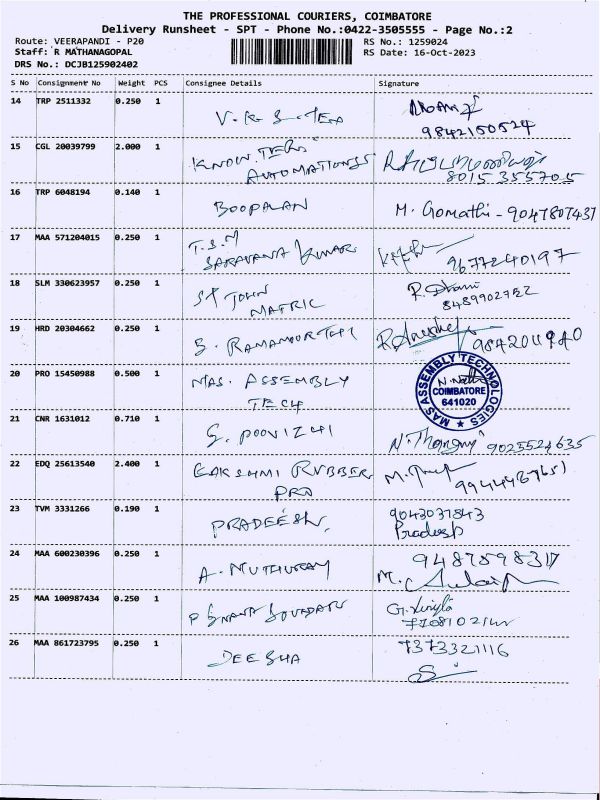 THE PROFESSIONAL COURIERS, COIMBATORE
Delivery Runsheet - SPT - Phone No.:0422-3505555 - Page No.:2
Route: VEERAPANDI - P20 RS No.: 1259024
Staff: R MATHANAGOPAL RS Date: 16-Oct-2023
DRS No.: DCJB125902402
S No Consignment No Weight PCS Consignee Details Signature
14 TRP 2511332 0.250 1
9842150524
15 CGL 20039799 2.000 1 KNOW TECH
AUTOMATIONS 8015355705
16 TRP 6048194 0.140 1 BOOPALAN M. Gomathi - 9047807437
17 MAA 571204015 0.250 1 T.S.M
SARAVANA KUMAR 9677240197
18 SLM 330623957 0.250 1 ST JOHN R. Dhani
MATRIC 8489902752
19 HRD 20304662 0.250 1 B. RAMAMOORTHI 9842011940
20 PRO 15450988 0.500 1 MAS. ASSEMBLY
TECH
MAS ASSEMBLY TECHNOLOGIES
COIMBATORE
641020
21 CNR 1631012 0.710 1 S. POOVIZHI 9025524635
22 EDQ 25613540 2.400 1 LAKSHMI RUBBER
PRO
23 TVM 3331266 0.190 1 PRADEESH 9043037843
Pradeesh
24 MAA 600230396 0.250 1 9487598317
25 MAA 100987434 0.250 1
26 MAA 861723795 0.250 1 DEESHA 7373321116